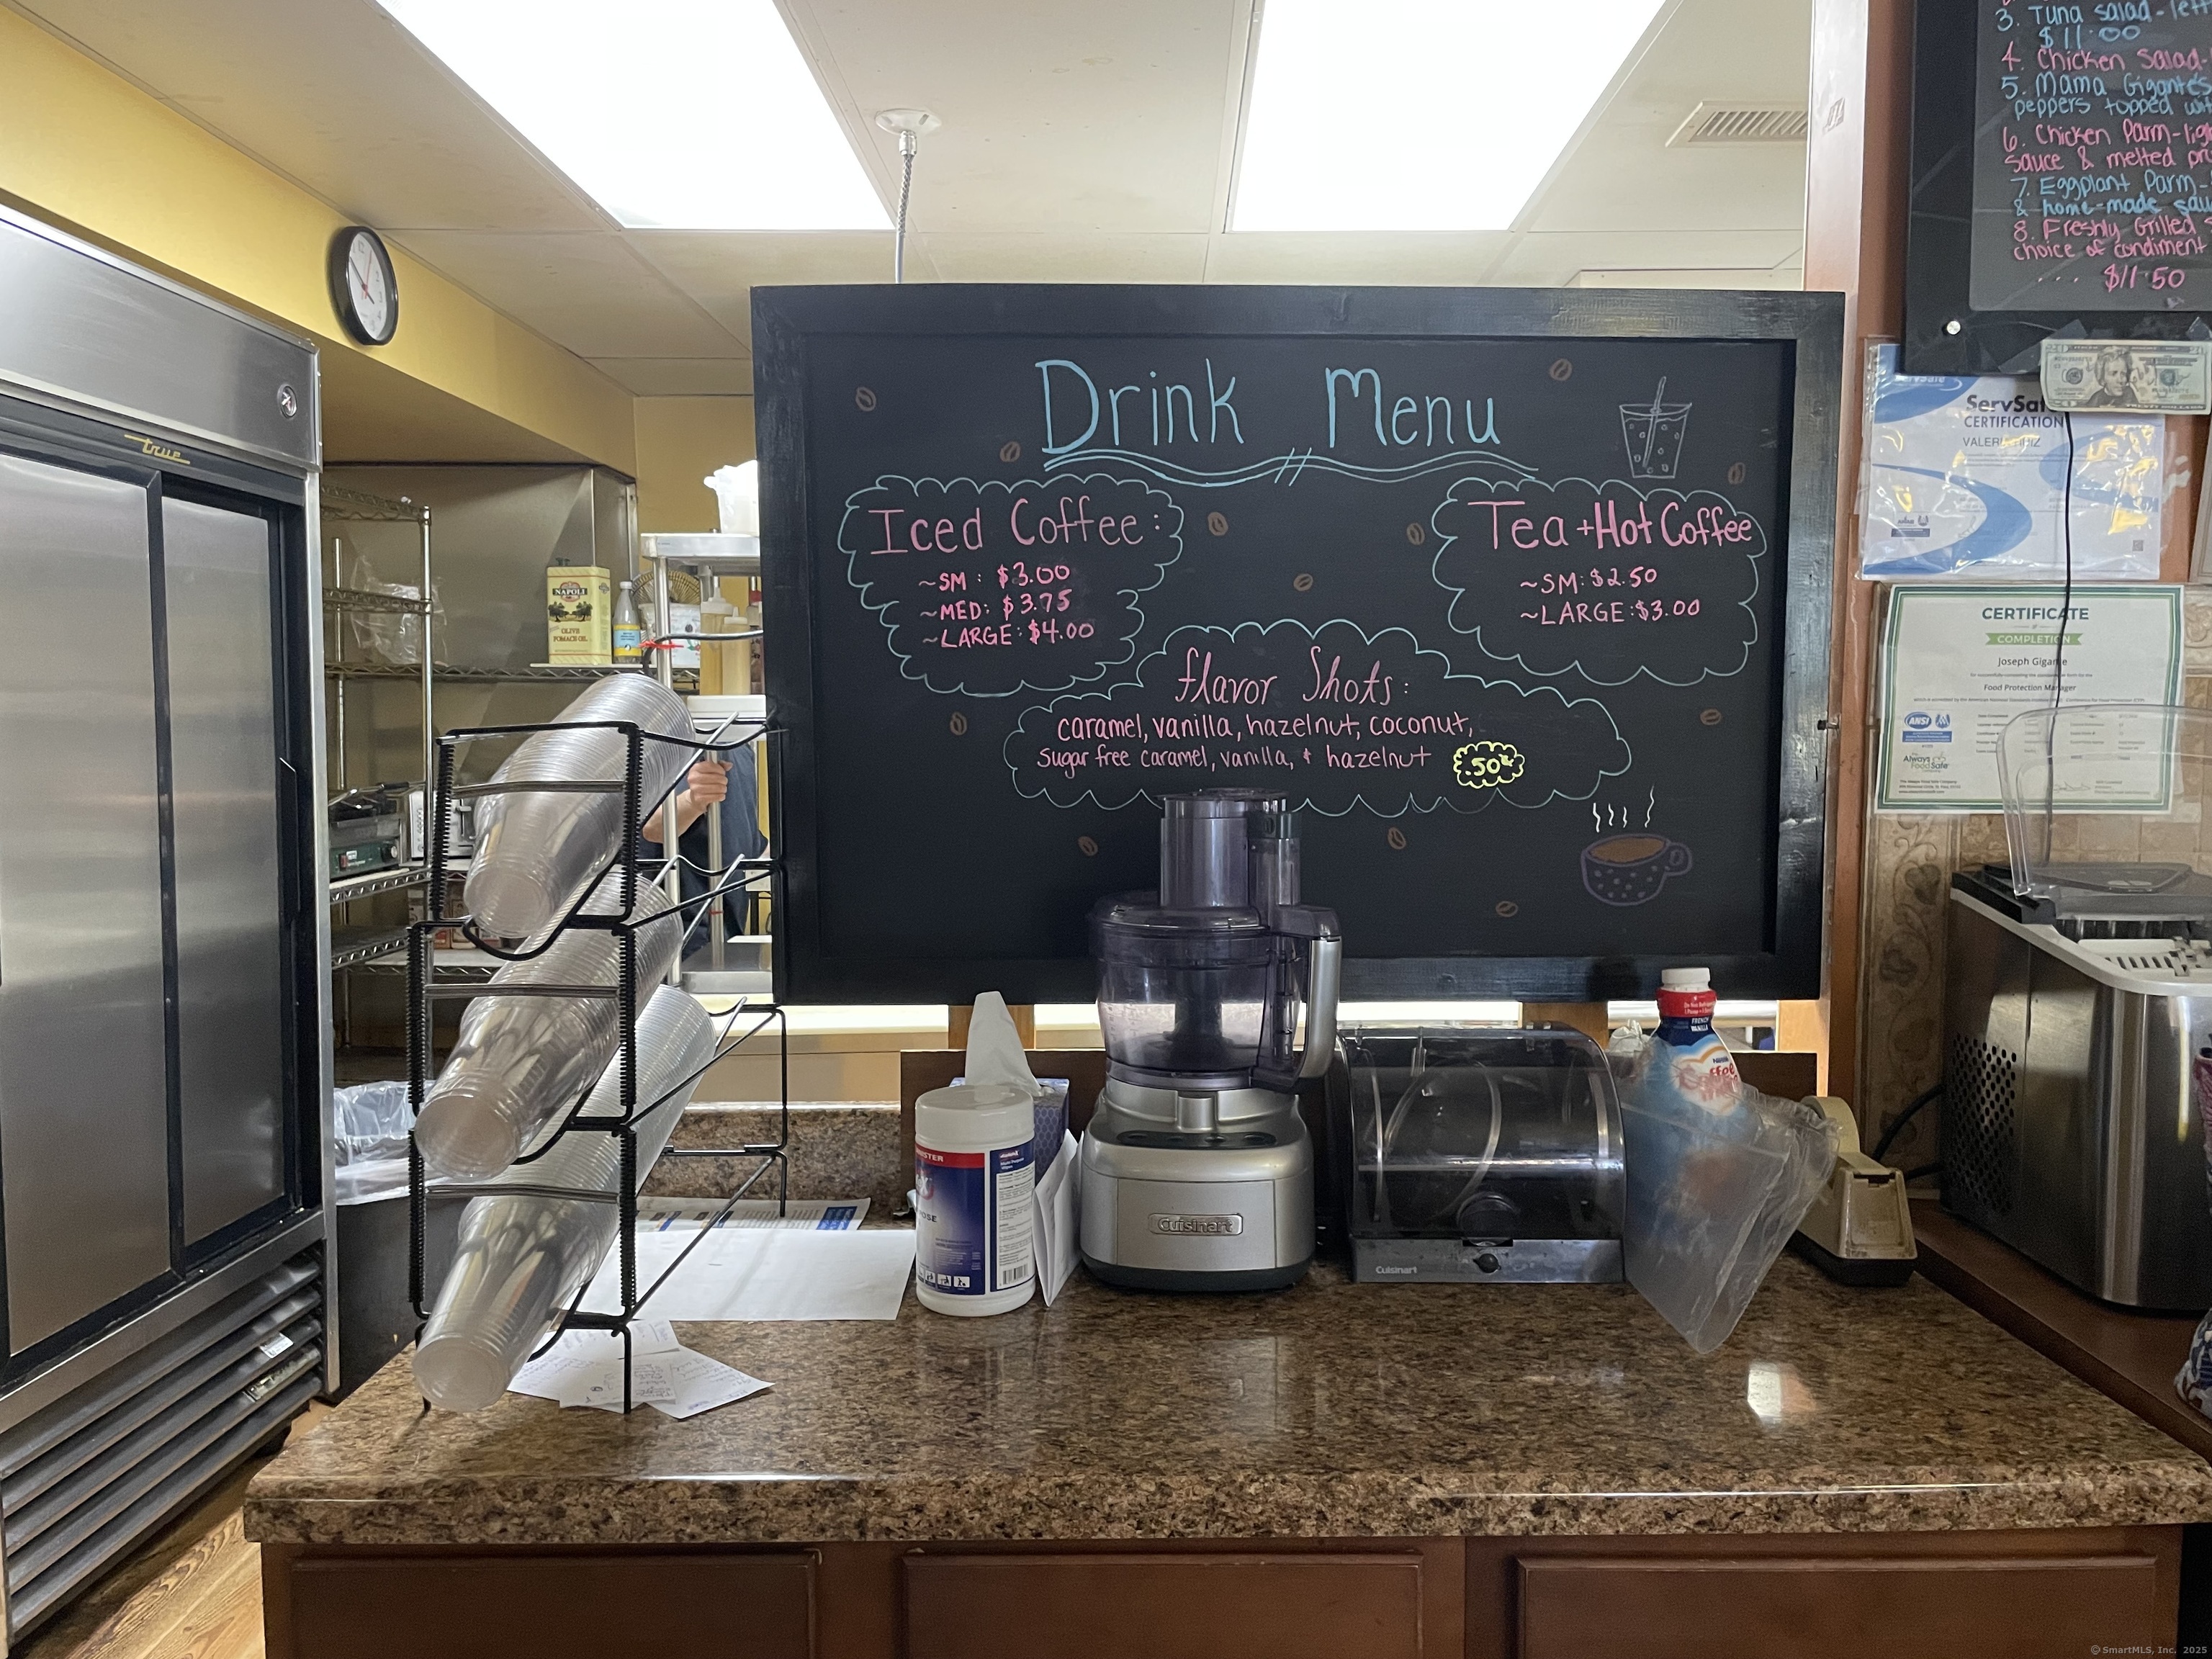 Drink Menu
Iced Coffee:
~SM: $3.00
~MED: $3.75
~LARGE: $4.00
Tea + Hot Coffee
~SM: $2.50
~LARGE: $3.00
flavor Shots:
caramel, vanilla, hazelnut, coconut,
sugar free caramel, vanilla, + hazelnut
.50¢
3. Tuna salad-lett
$11.00
4. Chicken Salad-
5. Mama Gigante's
peppers topped wit
6. Chicken Parm-lig
sauce & melted pro
7. Eggplant Parm-
& home-made sau
8. Freshly Grilled
choice of condiment
... $11.50
ServSafe
CERTIFICATION
CERTIFICATE
COMPLETION
Joseph Gigante
Food Protection Manager
ANSI
Always
Food Safe
true
NAPOLI
OLIVE
POMACE OIL
Cuisinart
Cuisinart
FRENCH
VANILLA
Nestle
© SmartMLS, Inc. 2025